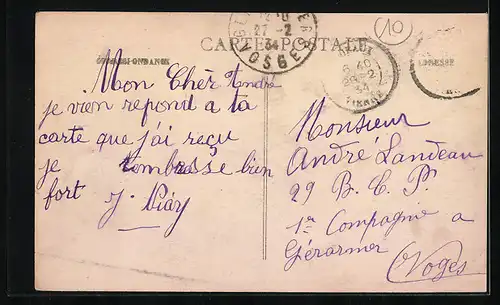 CARTE POSTALE
CORRESPONDANCE
ADRESSE
10
27-2
34
VOSGES
28-2
34
VIENNE
Mon Chèr André
je vien repond a ta
carte que j'ai reçu
je tembrasse bien
fort
Monsieur
André Landeau
29 B. C. P.
1re Compagnie a
Gérarmer
Voges